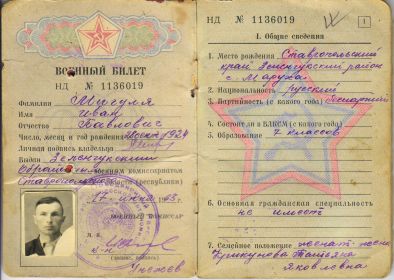 ВОЕННЫЙ БИЛЕТ
НД № 1136019
Фамилия
Имя Иван
Отчество Павлович
Число, месяц и год рождения 1924
Личная подпись владельца
Выдан
военным комиссариатом
(республики)
17 июня
ВОЕННЫЙ КОМИССАР
М. П.
НД № 1136019
1
I. Общие сведения
1. Место рождения Ставропольский
край Зеленчукский район
с. Маруха
2. Национальность русский
3. Партийность (с какого года) беспартийн
4. Состоит ли в ВЛКСМ (с какого года)
5. Образование 7 классов
6. Основная гражданская специальность
не имеет
7. Семейное положение женат жена
Татьяна
Яковлевна